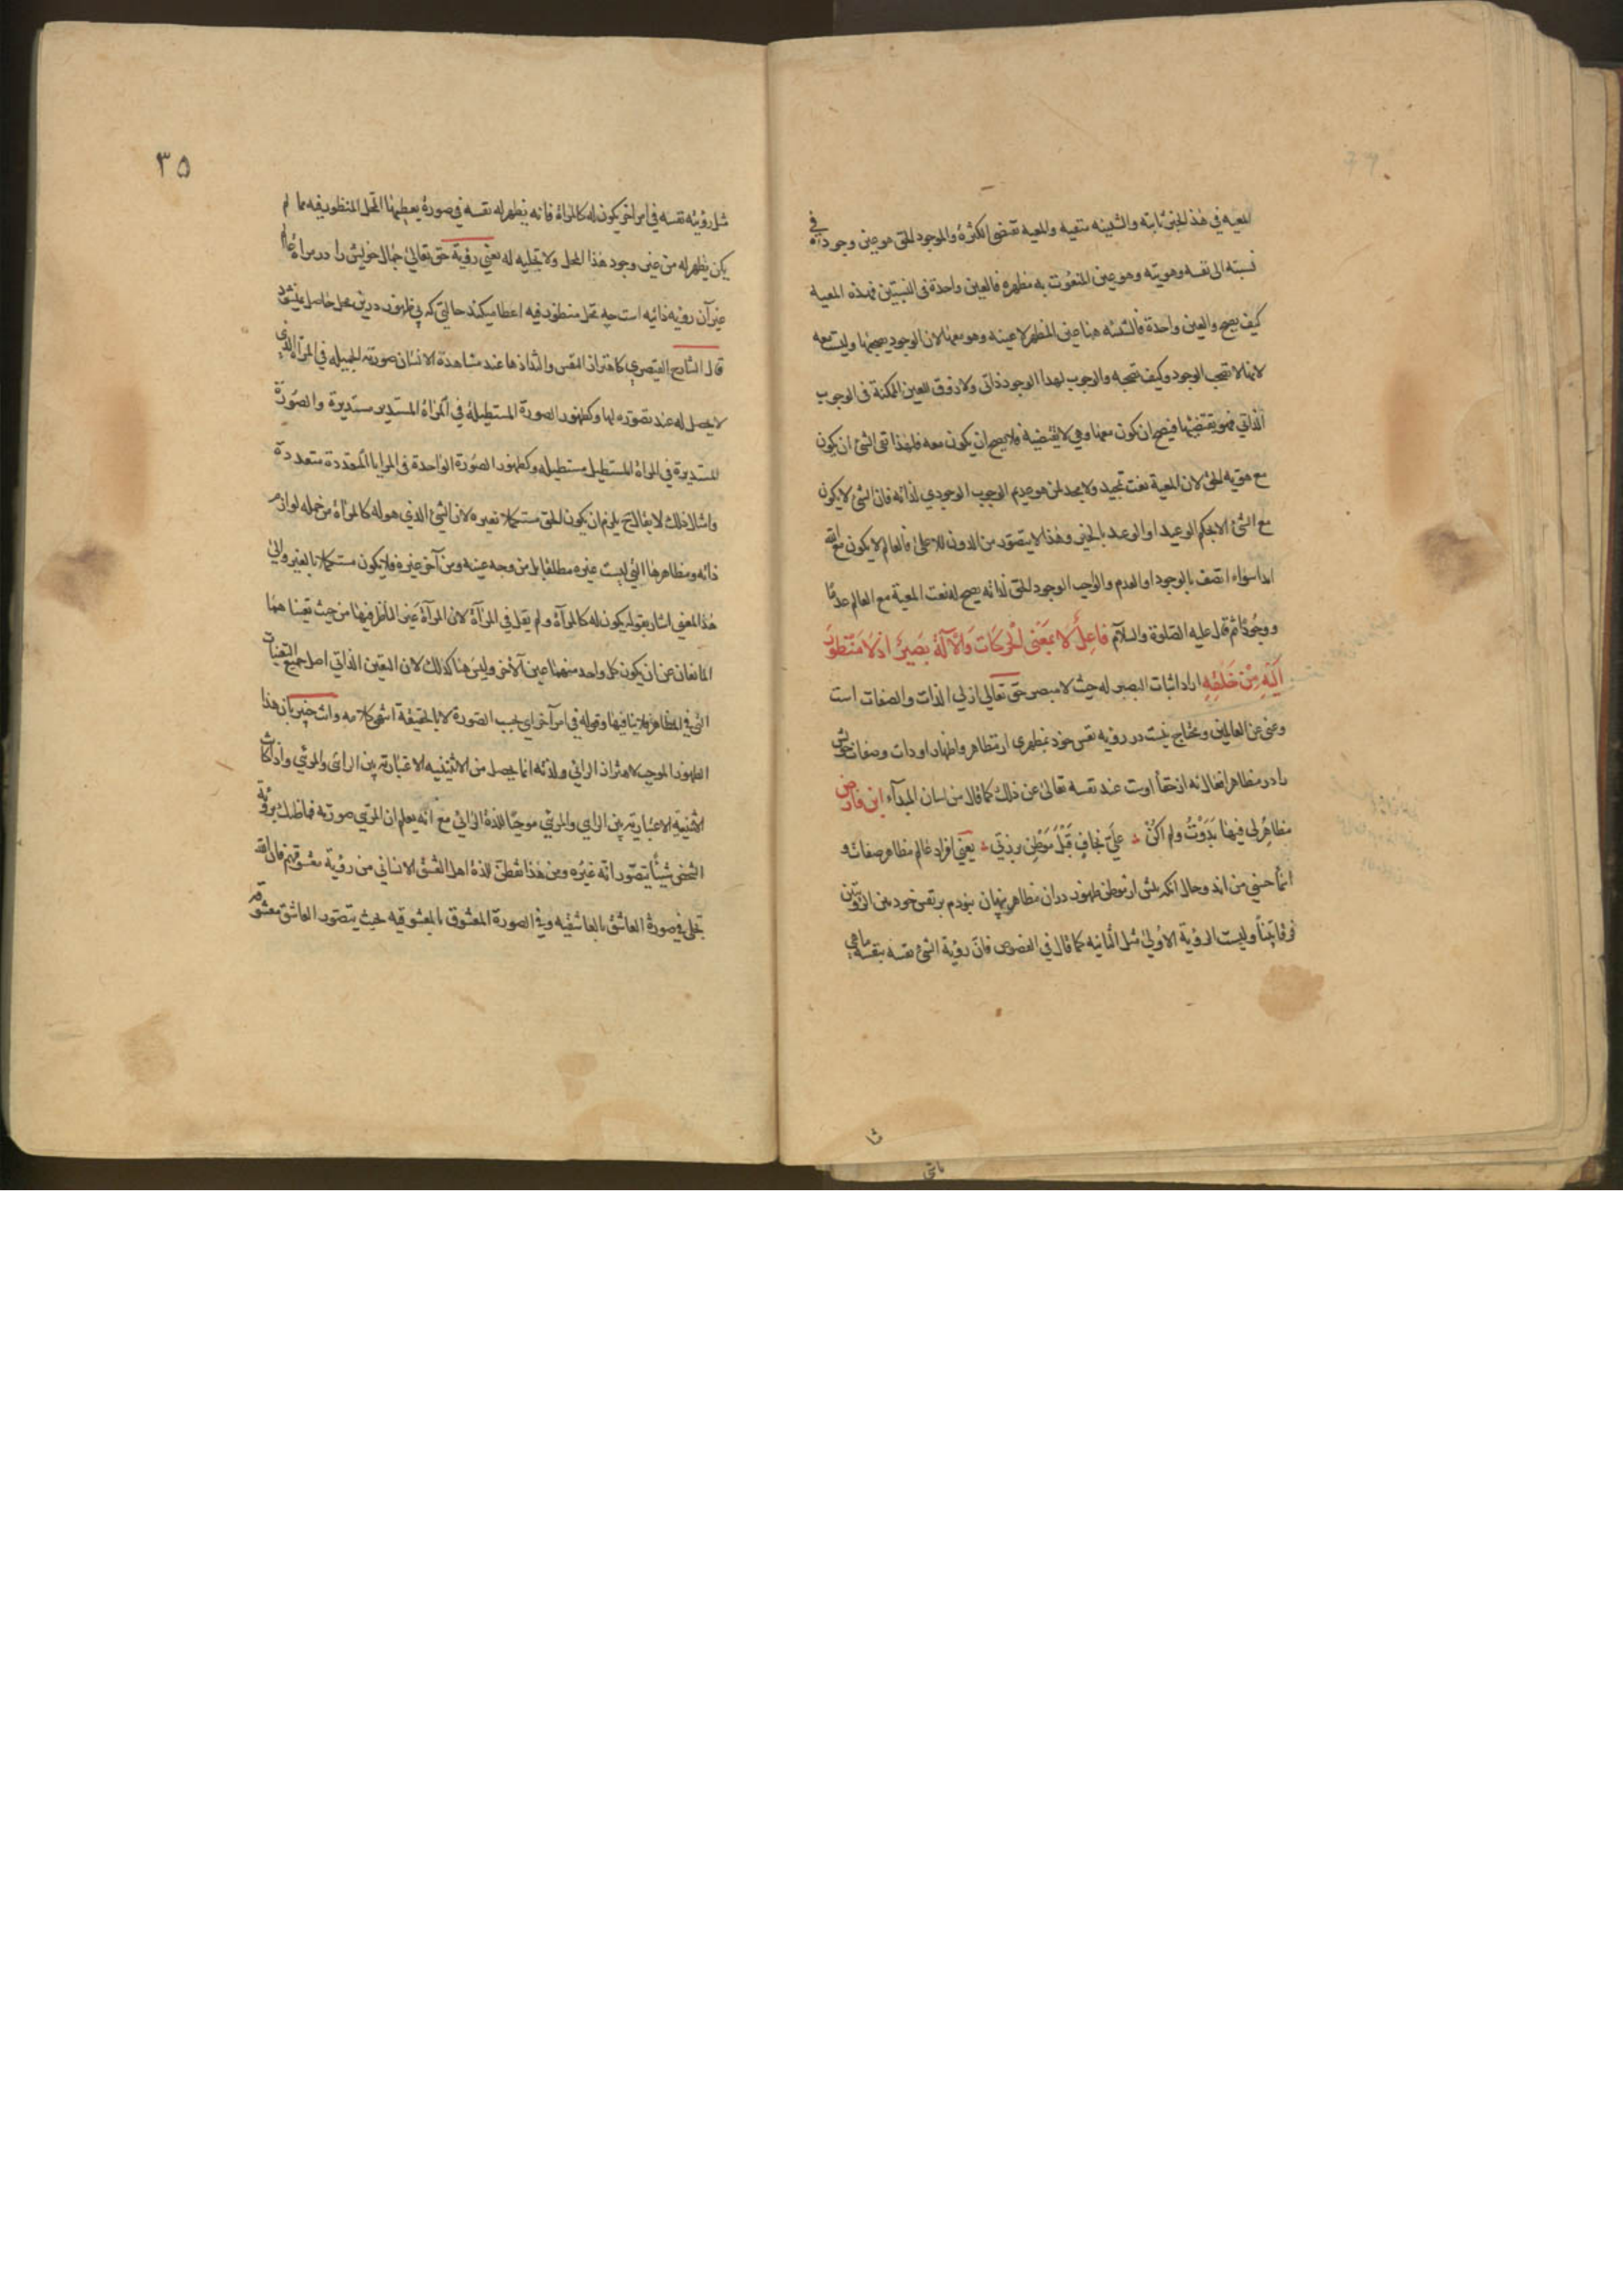 المعیه فی هذ الخبر ثابته والشیئیه منتفیه والمعیه تقتضی الکثرة والموجود الحق هو عین وجوده فی
نسبته الی نفسه وهویته وهو عین المنعوت به مظهره فالعین واحدة فی النسبتین فهذه المعیه
کیف یصح والعین واحدة فالشیئیه هنا عین المظهر لا عینه وهو معها لان الوجود یصحبها ولیست معه
لانها لا تصحب الوجود وکیف تصحبه والوجوب لهذا الوجود ذاتی ولا ذوق للعین الممکنة فی الوجوب
الذاتی فهو یقتضیها فیصح ان یکون معها وهی لا تقتضیه فلا یصح ان یکون معه فلهذا نفی الشئ ان یکون
مع هویه الحق لان المعیة نعت تمجید ولا مجد لمن هو عدیم الوجوب الوجودی لذاته فان الشئ لا یکون
مع الشئ الا بحکم الوعید او الوعد بالخیر وهذا لا یتصور من الدون للاعلی فالعالم لا یکون مع الله
ابدا سواء اتصف بالوجود او العدم والواجب الوجود الحق لذاته یصح له نعت المعیة مع العالم عدما
ووجودا ثم قال علیه الصلوة والسلام فَاعِلٌ لا بمَعْنی الْحَرکَات وَالْآلَة بَصِیرٌ اذ لَا مَنْظورَ
اِلَیْهِ مِنْ خَلْقِهِ اراد اثبات البصر له حیث لا مبصر حق تعالی ازلی الذات والصفات است
وغنی عن العالمین ومحتاج نیست در رؤیه نفس خود بمظهری از مظاهر واظهار او ذات وصفات خویش
را در مظاهر افعال نه از حقا اوست عند نفسه تعالی عن ذلک کما قال من لسان المبدآء ابن فارض
مظاهِرُ لی فیها بَدَوْتُ ولم اکُنْ ؞ علیّ بخافٍ قَبْلَ مَوْطِنِ برزتی ؞ یعنی افراد عالم مظاهر صفات و
اسمآ حسنی من اند وحال آنکه پیش از موطن ظهور در ان مظاهر پنهان نبودم بر نفس خود بین الرؤیتین
فرقا بیّناً ولیست الرؤیة الاولی مثل الثانیه کما قال فی الفصوص فانّ رؤیة الشئ نفسه بنفسه ما هی
٣٥
مثل رؤیته نفسه فی امر آخر یکون له کالمرآة فانه یظهر له نفسه فی صورة یعطیها المحل المنظور فیه مما لم
یکن یظهر له من غیر وجود هذا المحل ولا تجلیه له یعنی رؤیة حق تعالی جمال خویش را در مراة عالم
غیر آن رؤیه ذاتیه است چه محل منظور فیه اعطا میکند حالتی که بی ظهور درین محل حاصل نمیشود
قال الشارح القیصری کاهتزاز النفس والتذاذها عند مشاهدة الانسان صورته الجمیله فی المرآة الذی
لا یحصل له عند تصوره لها وکظهور الصورة المستطیلة فی المرآة المستدیر مستدیرة والصّورة
المستدیرة فی المرآة المستطیل مستطیله وکظهور الصورة الواحدة فی المرایا المتعددة متعددة
وامثال ذلک لا یقال ح یلزم ان یکون الحق مستکملا بغیره لان الشئ الذی هو له کالمرآة من جمله لوازم
ذاته ومظاهرها التی لیست غیره مطلقا بل من وجه عینه ومن آخر غیره فلا یکون مستکملا بالغیر والی
هذا المعنی اشار بقوله یکون له کالمرآة ولم یقل فی المرآة لان المرآة غیر الناظر فیها من حیث تعیناهما
المانعان عن ان یکون کل واحد منهما عین الآخر ولیس هنا کذلک لان التعین الذاتی اصل جمیع التعینات
التی فی المظاهر فلا ینافیها وقوله فی امر آخر ای بحسب الصورة لا بالحقیقة انتهی کلامه وانت خبیر بان هذا
الظهور الموجب لاهتزاز الرائی ولذته انما یحصل من الاثنینیه الاعتباریه بین الرائی والمرئی واذا کانت
الاثنینیة الاعتباریة بین الرائی والمرئی موجبا للذة الرائی مع انه یعلم ان المرئی صورته فما ظنک برؤیة
الشخص شیئاً یتصوّر انّه غیره ومن هذا تفطّن للذة اهل العشق الانسانی من رؤیة معشوقهم فان الله
تجلی فی صورة العاشق بالعاشقیه وفی الصورة المعشوق بالمعشوقیه بحیث یتصور العاشق معشوقه